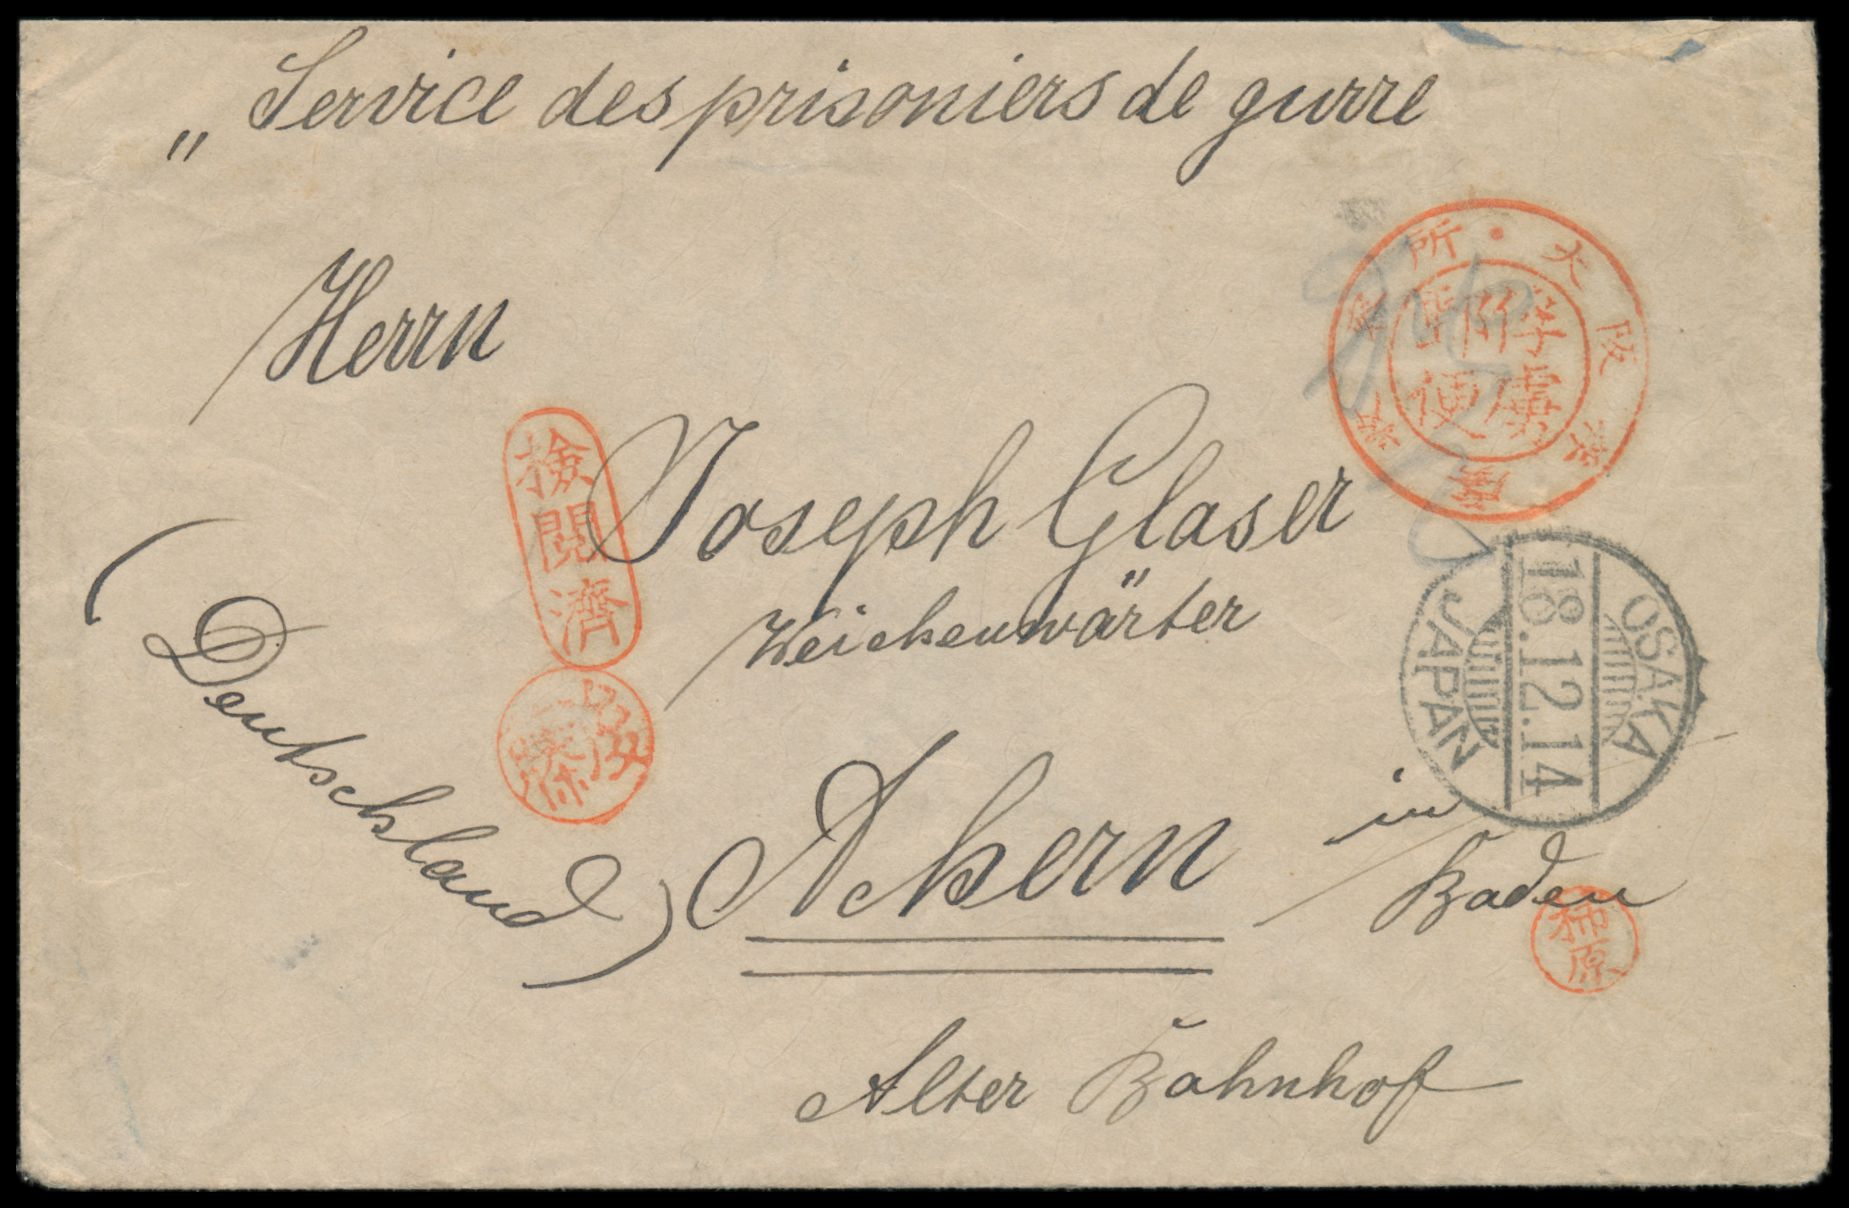 „ Service des prisoniers de gurre
Herrn
Joseph Glaser
Weichenwärter
Achern in
Baden
(Deutschland)
Alter Bahnhof
大阪俘虜収容所
俘虜郵便
検閲済
OSAKA
18.12.14
JAPAN
柿原